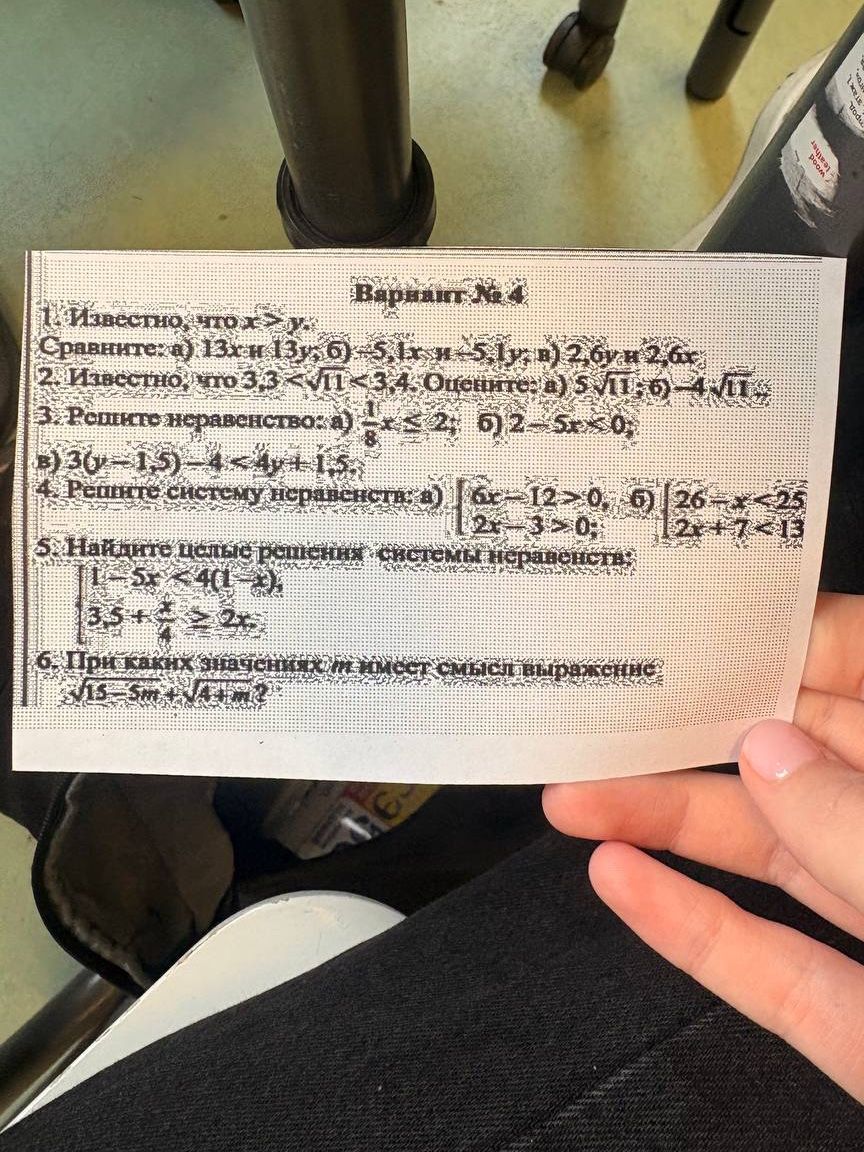 wood
leather
Вариант № 4
1. Известно, что x > y.
Сравните: а) 13x и 13y; б) –5,1x и –5,1y; в) 2,6y и 2,6x.
2. Известно, что 3,3 < √11 < 3,4. Оцените: а) 5 √11; б) –4 √11.
3. Решите неравенство: а) 1/8 x ≤ 2; б) 2 – 5x < 0;
в) 3(y – 1,5) – 4 < 4y + 1,5.
4. Решите систему неравенств: а) { 6x – 12 > 0, б) { 26 – x < 25
2x – 3 > 0; 2x + 7 < 13
5. Найдите целые решения системы неравенств:
1 – 5x < 4(1 – x),
3,5 + x/4 ≥ 2x.
6. При каких значениях m имеет смысл выражение
√15 – 5m + √4 + m ?